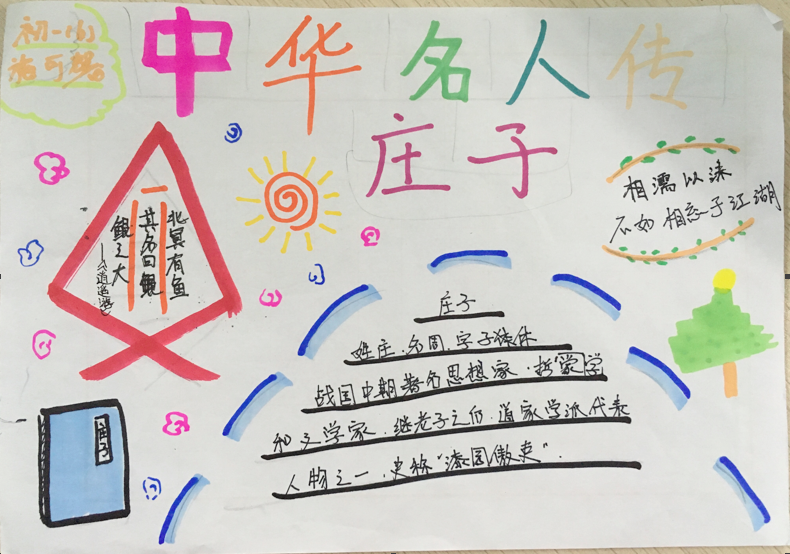 初一(6)
中华名人传
庄子
相濡以沫
不如相忘于江湖
北冥有鱼
其名曰鲲
鲲之大
——《逍遥游》
庄子
姓庄、名周、字子休
战国中期著名思想家、哲学
和文学家、继老子之后、道家学派代表
人物之一、史称“漆园傲吏”.
庄子